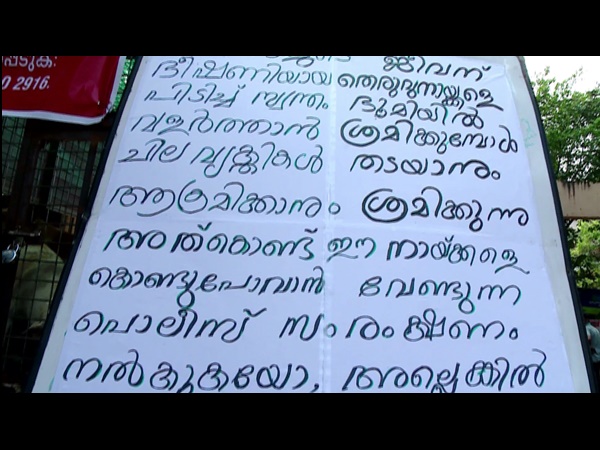 പ്പെടുക:
0 2916.
ജീവന്
ഭീഷണിയായ തെരുവുനായ്ക്കളെ
പിടിച്ച് സ്വന്തം ഭൂമിയിൽ
വളർത്താൻ ശ്രമിക്കുമ്പോൾ
ചില വ്യക്തികൾ തടയാനും
ആക്രമിക്കാനും ശ്രമിക്കുന്നു
അത്കൊണ്ട് ഈ നായ്ക്കളെ
കൊണ്ടുപോവാൻ വേണ്ടുന്ന
പൊലീസ് സംരംക്ഷണം
നൽകുകയോ, അല്ലെങ്കിൽ